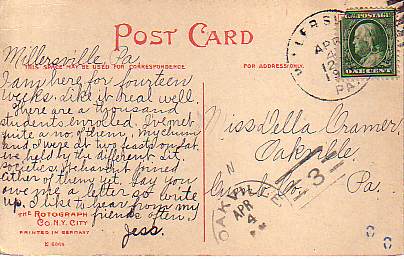 POST CARD
THIS SPACE MAY BE USED FOR CORRESPONDENCE
FOR ADDRESS ONLY.
Millersville, Pa.
I am here for fourteen
weeks. Like it real well.
There are a thousand
students enrolled. I've met
quite a no. of them, my chum
and I were at two feasts on Sat.
eve held by the different Lit.
Societies. We haven't joined
either of them yet. Say you
owe me a letter so write
up. I like to hear from my
friends often.
Jess.
THE ROTOGRAPH
CO. N.Y. CITY
PRINTED IN GERMANY
MILLERSVI
APR
PA.
U.S. POSTAGE
ONE CENT
Miss Della Cramer
Oakville
Co.
Pa.
OAKVILLE
APR
4
3